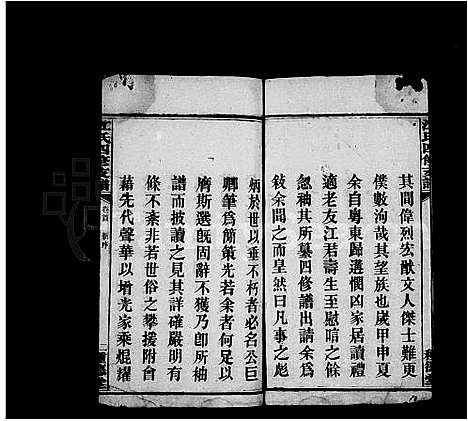 其間偉烈宏猷文人傑士難更
僕數洵哉其望族也歲甲申夏
余自粵東歸遘憫凶家居讀禮
適老友江君壽生至慰唁之餘
忽袖其所纂四修譜出請余為
敍余聞之而皇然曰凡事之彪
炳於世以垂不朽者必名公巨
卿筆為簡策光若余者何足以
膺斯選旣固辭不獲乃卽所袖
譜而披讀之見其詳確嚴明有
條不紊非若世俗之攀援附會
藉先代聲華以增光家乘焜燿
江氏四修支譜
卷首
新序
二